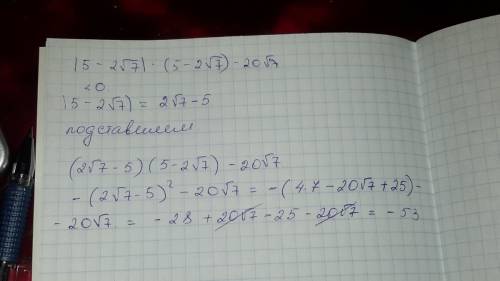 |5 - 2√7| · (5 - 2√7) - 20√7
< 0
|5 - 2√7| = 2√7 - 5
подставляем
(2√7 - 5)(5 - 2√7) - 20√7
- (2√7 - 5)² - 20√7 = - (4·7 - 20√7 + 25) -
- 20√7 = - 28 + 20√7 - 25 - 20√7 = - 53